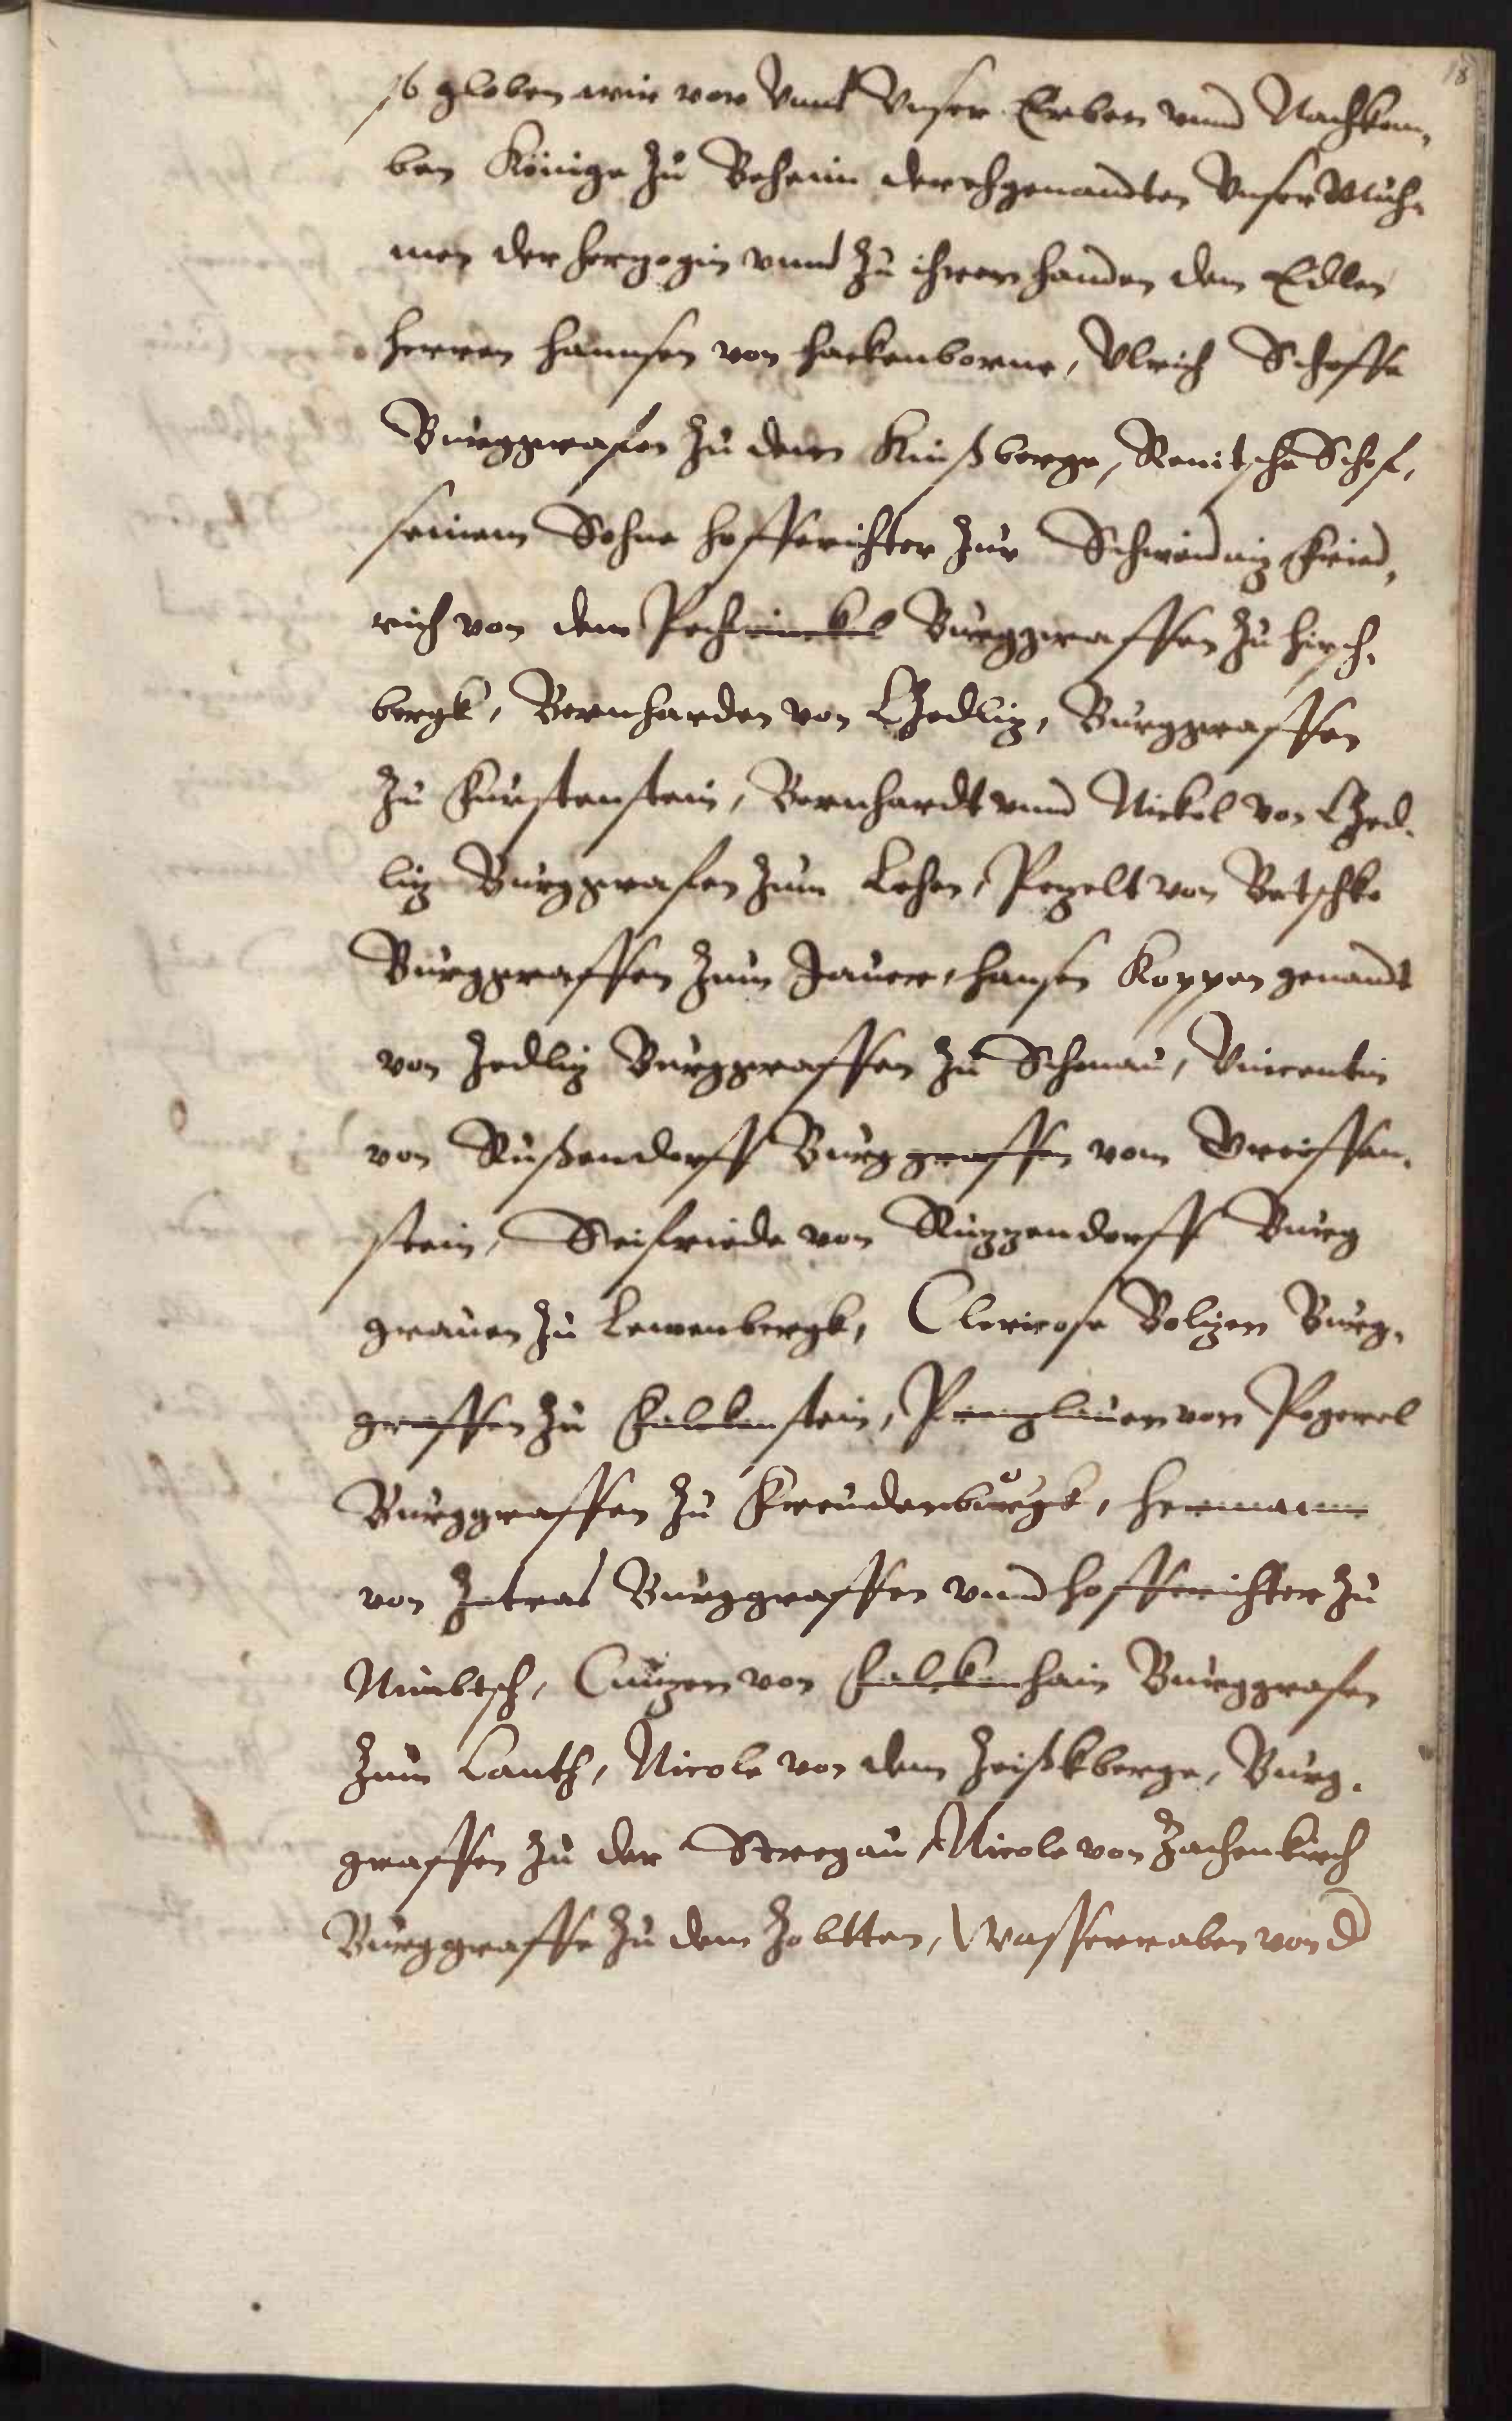 18
so globen wir vor Vnns Vnser Erben vnnd Nachkom,
ben Könige zu Beheim der ehgenandten Vnser Muh,
men der Hertzogin vnnd zu ihren handen dem Edlen
Herren Hannsen von Hackenborne, Vlrich Schoffe
Burggrafen zu dem Kinßberge, Renitsche Schof,
seinem Sohne hofferichter zur Schweidnitz Fried,
rich von dem Pechwinckel Burggraffen zu Hirsch,
bergk, Bernharden von Czedlitz, Burggraffen
zu Furstenstein, Bernhardt vnnd Nickol von Czed,
litz Burggrafen zum Lehen, Petzelt von Betschke
Burggraffen zum Jauer, Hansen Koppen genandt
von Zedlitz Burggraffen zu Schonau, Vincentin
von Rußendorff Burggraffen vom Greiffen,
stein, Seifriede von Ruzzendorff Burg
grauen zu Lewenbergk, Clericose Bolizen Burg,
graffen zu Falckenstein, Prenzlauen von Pogerel
Burggraffen zu Freudenburgk, Hermann
von Zetras Burggraffen vnnd hofferichter zu
Nimbtsch, Cunzen von Falckenhain Burggrafen
zum Canth, Nicole von dem Zeißkberge, Burg,
graffen zu der Stregau, Nicole von Zachenkirch
Burggraffe zu dem Zobtten, Wasserraben von d